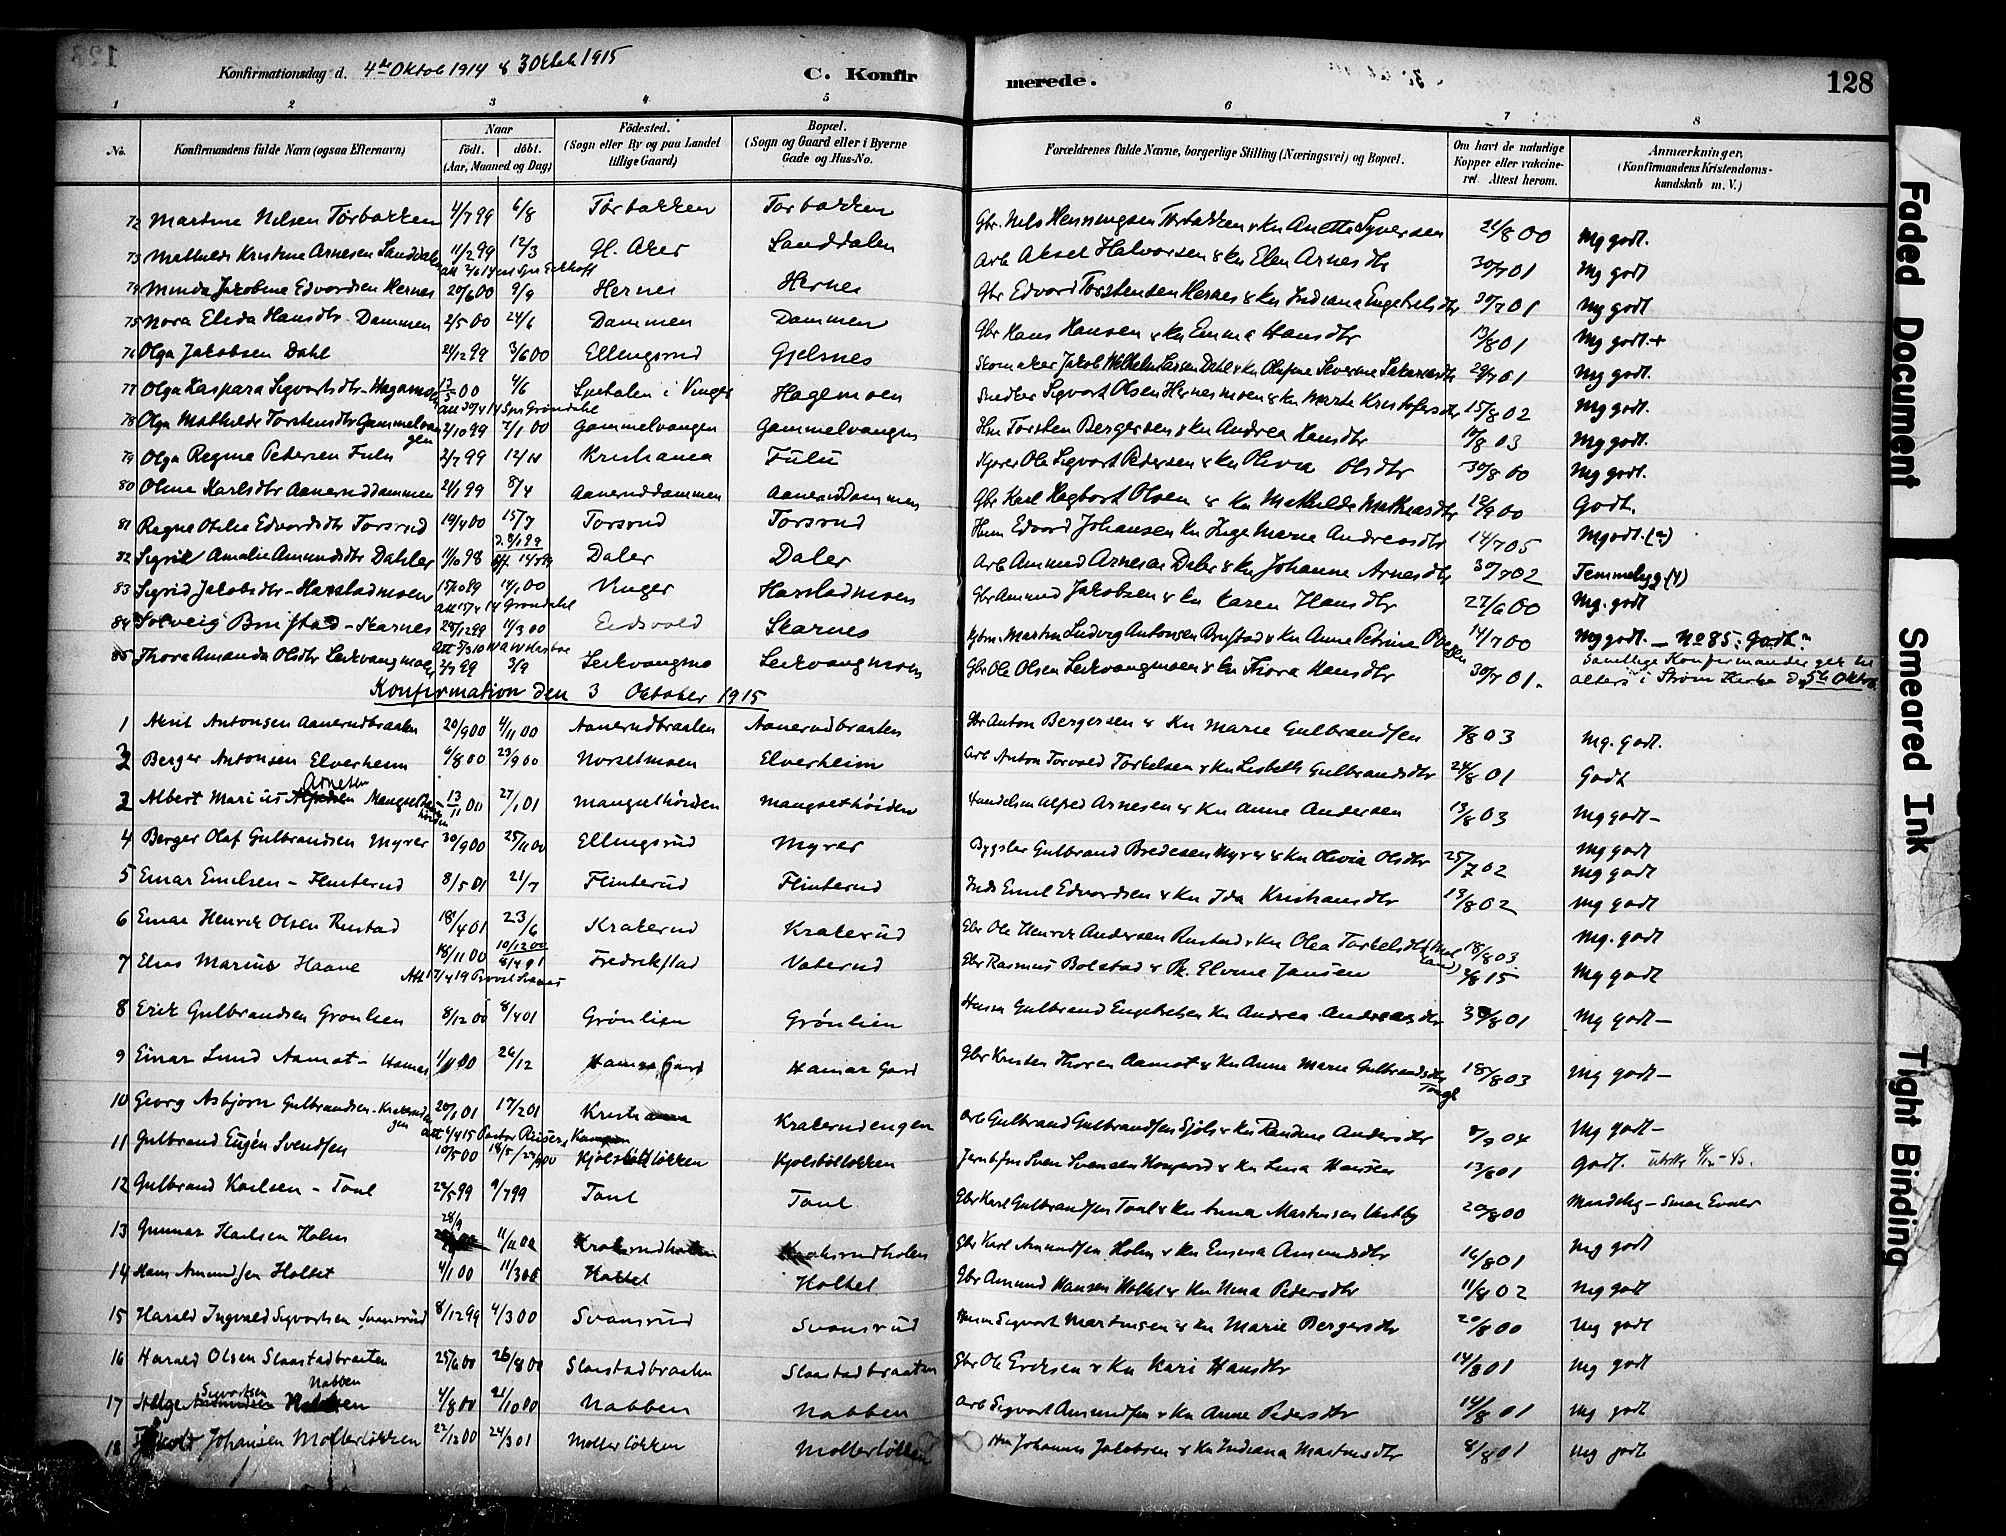 Konfirmationsdag d. 4de Oktob 1914 & 3 Oktob 1915
C. Konfir merede. 128
1 2 3 4 5 6 7 8
No. Konfirmandens fulde Navn (ogsaa Efternavn) Naar födt. döbt. (Aar, Maaned og Dag) Födested. (Sogn eller By og paa Landet tillige Gaard) Bopæl. (Sogn og Gaard eller i Byerne Gade og Hus-No. Forældrenes fulde Navne, borgerlige Stilling (Næringsvei) og Bopæl. Om havt de naturlige Kopper eller vakcineret. Attest herom. Anmærkninger. (Konfirmandens Kristendomskundskab m. V.)
72 Martine Nilsen Torbakken 4/7 99 6/8 Torbakken Torbakken Gbr. Nils Henningsen Torbakken & Kn Anette Syversen 21/8 00 Mg godt.
73 Mathilde Kristine Arnesen Sanddalen 11/2 99 12/3 Gl. Aker Sanddalen Arb Aksel Halvorsen & Kn Elen Arnesdtr 30/7 01 Mg godt
74 Minda Jakobine Edvardsen Hernes 20/6 00 9/9 Hernes Hernes Gbr Edvard Torstensen Hernes & Kn Indiana Engebretsdtr 30/7 01 Mg godt
75 Nora Elida Hansdtr Dammen 2/5 00 24/6 Dammen Dammen Gbr Hans Hansen & Kn Emma Hansdtr 13/8 01 Mg godt.+
76 Olga Jakobsen Dahl 21/12 99 3/6 00 Ellingsrud Gjelsnes Skomaker Jakob Wilhelm Larsen Dahl & Kn 29/7 01 Mg godt.
77 Olga Kaspara Sigvartsdtr Hagamoen 13/5 00 4/6 Spetalen i Vinger Hagemoen Snedker Sigvart Olsen Hernesmoen & Kn Marte Kristofersdtr 15/8 02 Mg godt.
78 Olga Mathilde Torstensdtr Gammelvangen 2/10 99 7/1 00 Gammelvangen Gammelvangen Hm Torsten Bergersen & Kn Andrea Hansdtr 17/8 03 Mg godt.
79 Olga Regine Petersen Fulu 2/7 99 12/11 Kristiania Fulu Kjører Ole Sigvart Pedersen & Kn Olivia Olsdtr 30/8 00 Mg godt.
80 Oline Karlsdtr Aaneruddammen 21/1 99 8/4 Aaneruddammen Aaneruddammen Gbr Karl Hagbart Olsen & Kn Mathilde Mathiasdtr 12/9 00 Godt.
81 Ragna Otilie Edvardsdtr Torsrud 19/4 00 15/7 Torsrud Torsrud Hsm Edvard Johansen Kn Inge Marie Andreasdtr 14/7 05 Mgodt.
82 Sigrid Amalie Amundsdtr Dahler 11/10 98 Daler Daler Arb Amund Arnesen Daler & Kn Johanne Arnesdtr 30/7 02 Temmelig
83 Sigrid Jakobsdtr - Harstadmoen 15/10 99 14/1 00 Vinger Harstadmoen Gbr Amund Jakobsen & Kn Karen Hansdtr 27/6 00 Mg. godt
84 Solveig Brustad - Skarnes 28/12 99 11/3 00 Eidsvold Skarnes Martin Ludvig Antonsen Brustad & Kn Anne Petrine 14/7 00 Mg godt. - No 85: Godt.
85 Thora Amanda Olsdtr Leirvangmoen 2/7 99 3/9 Leirvangmo Leirvangmoen Gbr Ole Olsen Leirvangmoen & Kn Thora Hansdtr 30/7 01. Samtlige Konfirmander gik til alters i Strøm Kirke D 5te Oktob.
Konfirmation den 3 Oktober 1915
1 Arnt Antonsen Aanerudbraaten 20/9 00 4/11 00 Aanerudbraaten Aanerudbraaten Gbr Anton Bergersen & Kn Marie Gulbrandsen 7/8 03 Mg. godt.
2 Berger Antonsen Elverheim 6/8 00 23/9 00 Norsetmoen Elverheim Arb Anton Torvald Torkelsen & Kn Lisbeth Gulbrandsdtr 24/8 01 Godt
3 Albert Marius Arnesen 13/11 00 27/1 01 Mangsethöiden Alfred Arnesen & Kn Anne Andersen 13/8 03 Mg godt -
4 Berger Olaf Gulbrandsen Myrer 30/9 00 25/11 00 Ellingsrud Myrer Bygsler Gulbrand Bredesen Myrer & Kn Olivia Olsdtr 25/7 02 Mg godt
5 Einar Emilsen - Flinterud 8/5 01 21/7 Flinterud Flinterud Inds Emil Edvardsen & Kn Ida Kristiansdtr 13/8 02 Mg godt
6 Einar Henrik Olsen Rustad 18/4 01 23/6 Kraterud Kraterud Gbr Ole Henrik Andersen Rustad & Kn Olea Torkelsdtr 18/8 03 Mg. godt
7 Elias Marius Haave 18/11 00 10/12 00 Fredrikstad Vaterud Gbr Rasmus Bolstad & Pl. Elvine Jansen 4/8 15 Mg godt
8 Erik Gulbrandsen Gronlien 8/12 00 8/4 01 Grönlien Grönlien Gulbrand Engebretsen Kn Andrea Andreasdtr 30/8 01 Mg godt -
9 Einar Lund Aamot - Hamar 1/11 00 26/12 Hamar Gaard Hamar Gard Gbr Kristen Thoren Aamot & Kn Anne Marie Gulbrandsdtr 18/8 03 Mg godt -
10 Georg Asbjörn Gulbrandsen - Kraterudengen 20/1 01 17/2 01 Kristiania Kraterudengen Arb Gulbrand Gulbrandsen Sjöli & Kn Randine Andersdtr 8/9 04 Mg godt -
11 Gulbrand Eugén Svendsen 10/5 00 Kjölsötlökken Kjolsötlokken Sven Svensen & Kn Lina Hansen 13/6 01 Godt.
12 Gulbrand Karlsen - Toul 29/5 99 9/7 99 Toul Toul Gbr Karl Gulbrandsen Toul & Kn Anna Martinsen Vestby 20/8 00 Maadelig - Smaa Evner
13 Gunnar Karlsen Holm 28/9 11/11 00 Krakrudholen Krakrudholen Gbr Karl Amundsen Holm & Kn Emma Amundsdtr 16/8 01 Mg godt
14 Hans Amundsen Holtet 4/1 00 11/3 00 Holtet Holtet Gbr Amund Hansen Holtet & Kn Nina Pedersdtr 11/8 02 Mg godt
15 Harald Ingvald Sigvartsen Svansrud 8/12 99 4/3 00 Svansrud Svansrud Sigvart Martinsen & Kn Marie Bergersdtr 20/8 00 Mg godt
16 Harald Olsen Slaastadbraaten 25/6 00 26/8 00 Slaastadbraaten Slaastadbraaten Gbr Ole Eriksen & Kn Kari Hansdtr 14/8 01 Mg godt
17 Helge Sigvartsen Nabben 4/8 00 21/10 00 Nabben Nabben Arb Sigvart Amundsen & Kn Anne Pedersdtr 14/8 01 Mg godt
18 Johansen Mollerlökken 22/12 00 24/3 01 Mollerlökken Mollerlökken Hm Johannes Jakobsen & Kn Indiana Martinsdtr 8/8 01 Mg godt
Faded Document
Smeared Ink
Tight Binding